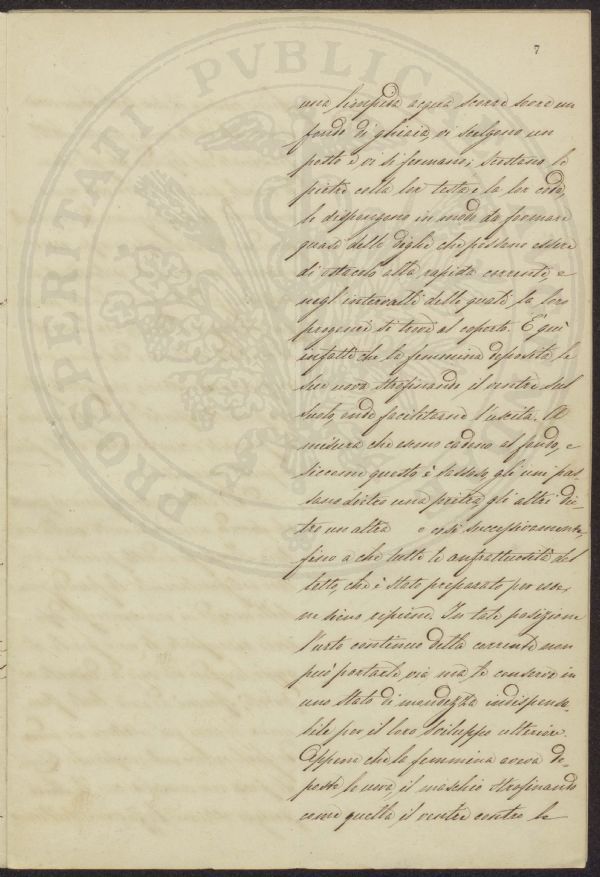 7
PROSPERITATI PVBLICAE
una limpida acqua scorre sovra un
fondo di ghiaia, vi scelgono un
posto e vi si fermano; spostano le
pietre colla lor testa e la lor coda,
le dispongono in modo da formare
quasi delle dighe che possano essere
di ostacolo alla rapida corrente, e
negl'intervalli delle quali la loro
progenie si trovi al coperto. È qui
infatti che la femmina deposita le
sue uova strofinando il ventre sul
suolo, onde facilitarne l'uscita. A
misura che escono cadono al fondo, e
siccome questo è sassoso, gli uni pas-
sano dietro una pietra, gli altri die-
tro un'altra e così successivamente,
fino a che tutte le anfrattuosità del
letto, che è stato preparato per esse,
ne sieno ripiene. In tale posizione
l'urto continuo della corrente non
può portarle via ma le conserva in
uno stato di mondezza indispensa-
bile per il loro sviluppo ulteriore.
Appena che la femmina aveva de-
poste le uova, il maschio strofinando
come quella il ventre contro le